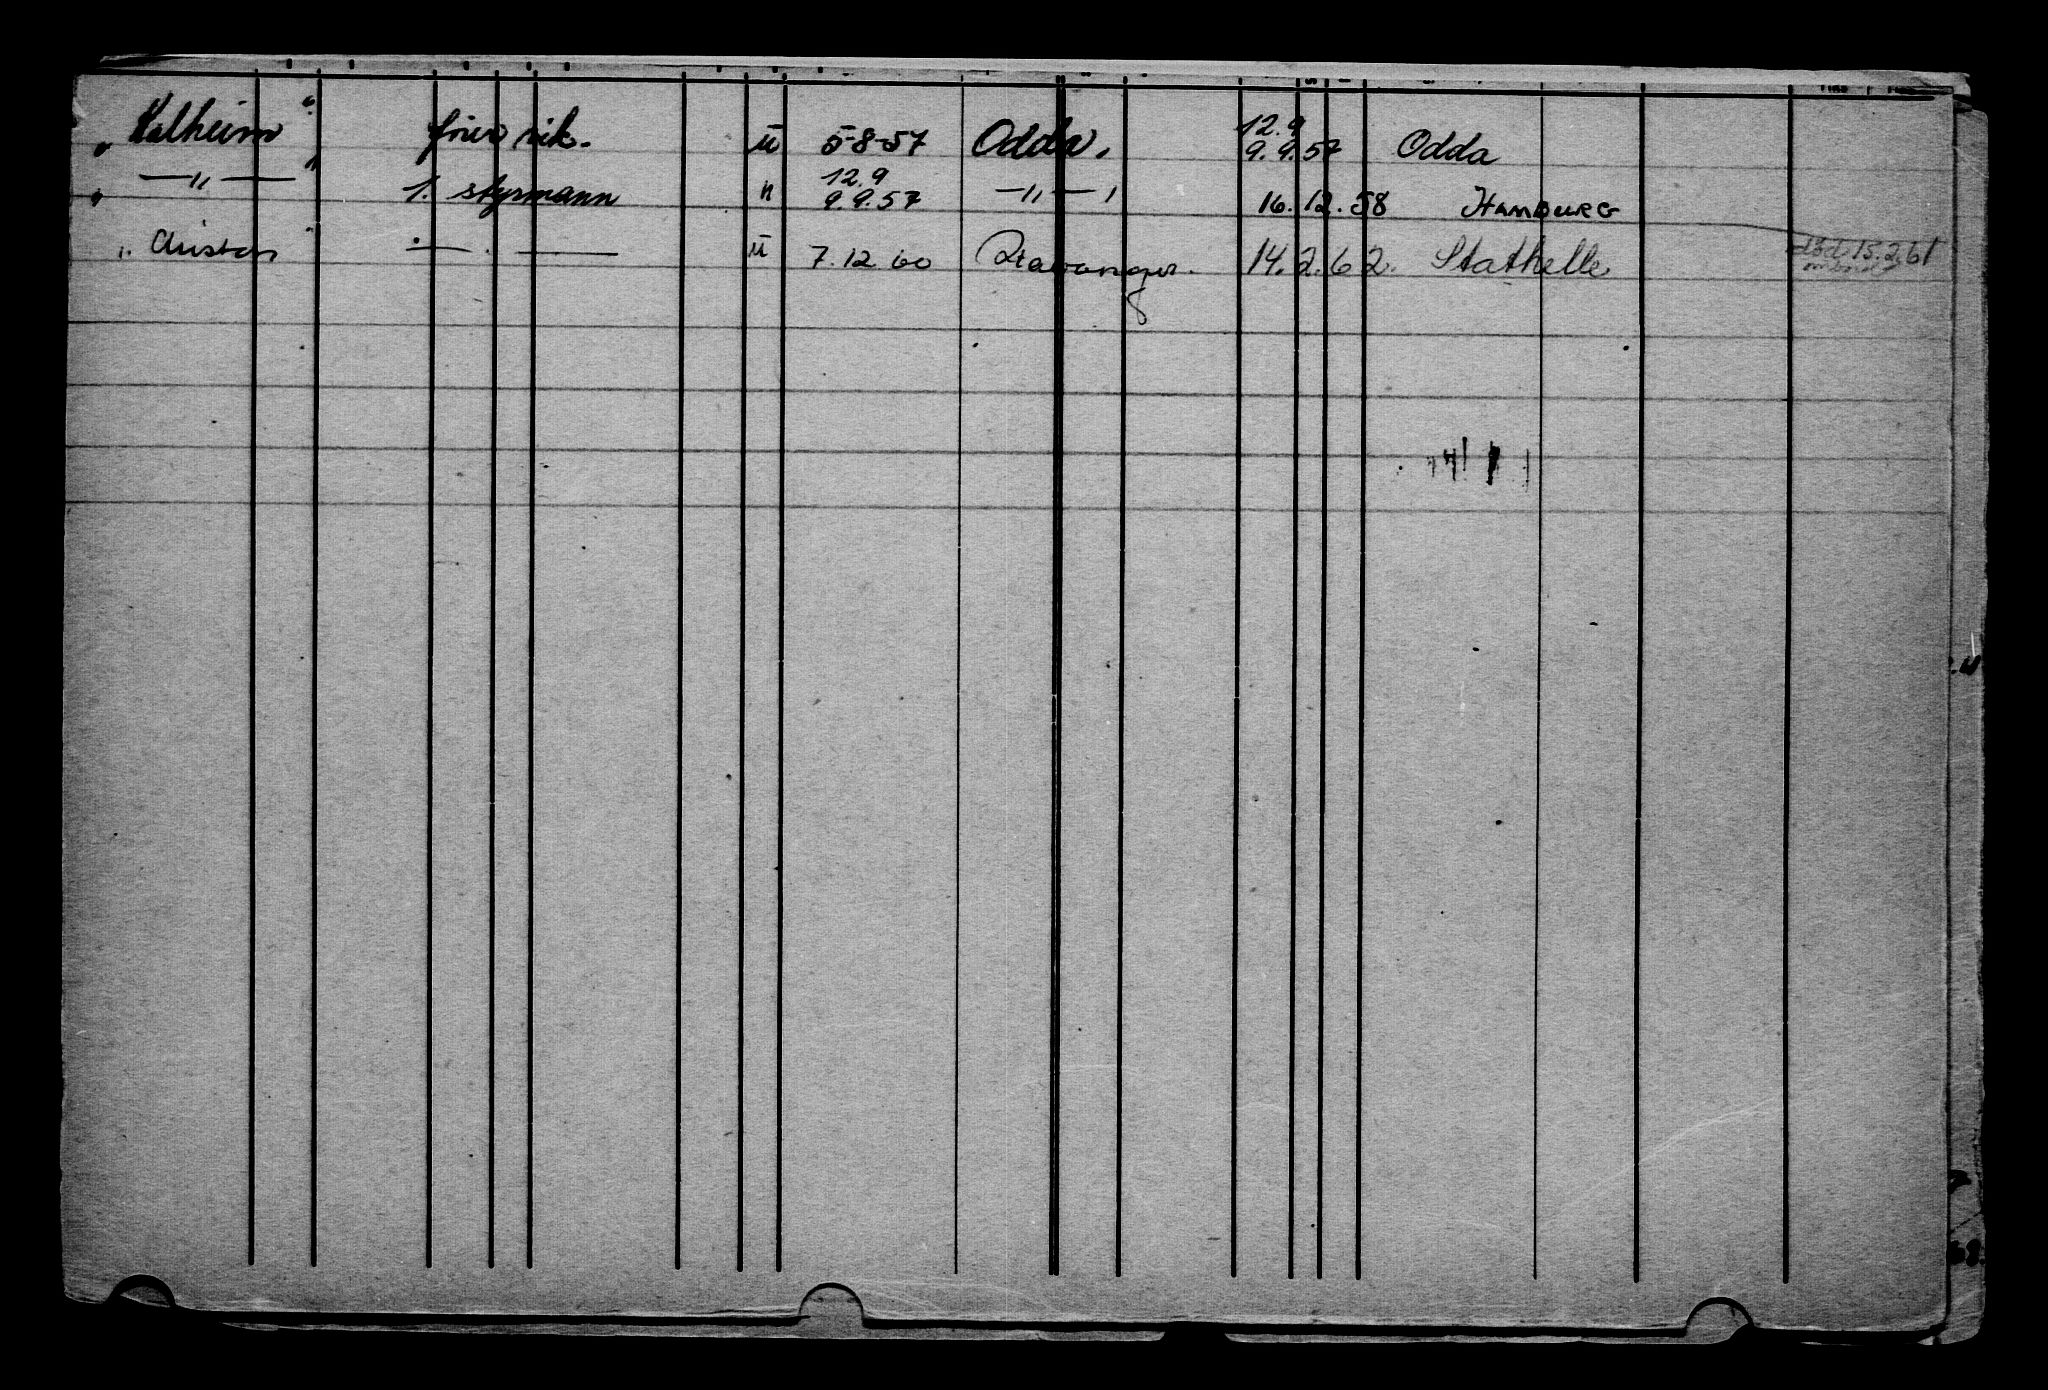 " Kalheim " friv sik. u 5-8-57 Odda. 12.9 9.9.57 Odda
" —"— " 1. styrmann " 12.9 9.9.57 —"— 16.12.58 HAMBURG
" — " — u 7.12.60 Stavanger. 14.2.62. Stathelle død 15.2.61 ombord